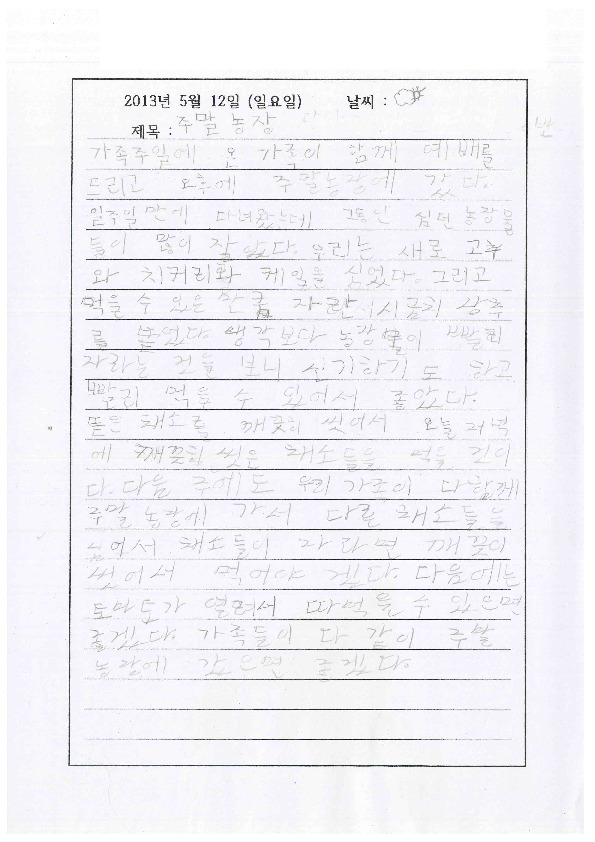 2013년 5월 12일 (일요일) 날씨 :
제목 : 주말 농장
가족주일에 온 가족이 함께 예배를
드리고 오후에 주말농장에 갔다.
일주일 만에 다녀왔는데 그동안 심던 농장물
들이 많이 잘 았다. 우리는 새로 고추
와 치커리와 케일을 심었다. 그리고
먹을 수 있은 만큼 자란 시금치 상추
를 뽑았다. 생각보다 농장물이 빨리
자라는 것을 보니 신기하기도 하고
빨리 먹을 수 있어서 좋았다.
뜯은 채소를 깨끗히 씻어서 오늘 저녁
에 깨끗히 씻은 채소들을 먹을 것이
다. 다음 주에도 우리 가족이 다 함께
주말 농장에 가서 다른 채소들을
심어서 채소들이 자라면 깨끗이
씻어서 먹어야 겠다. 다음에는
토마토가 열려서 따먹을 수 있으면
좋겠다. 가족들이 다 같이 주말
농장에 갔으면 좋겠다.